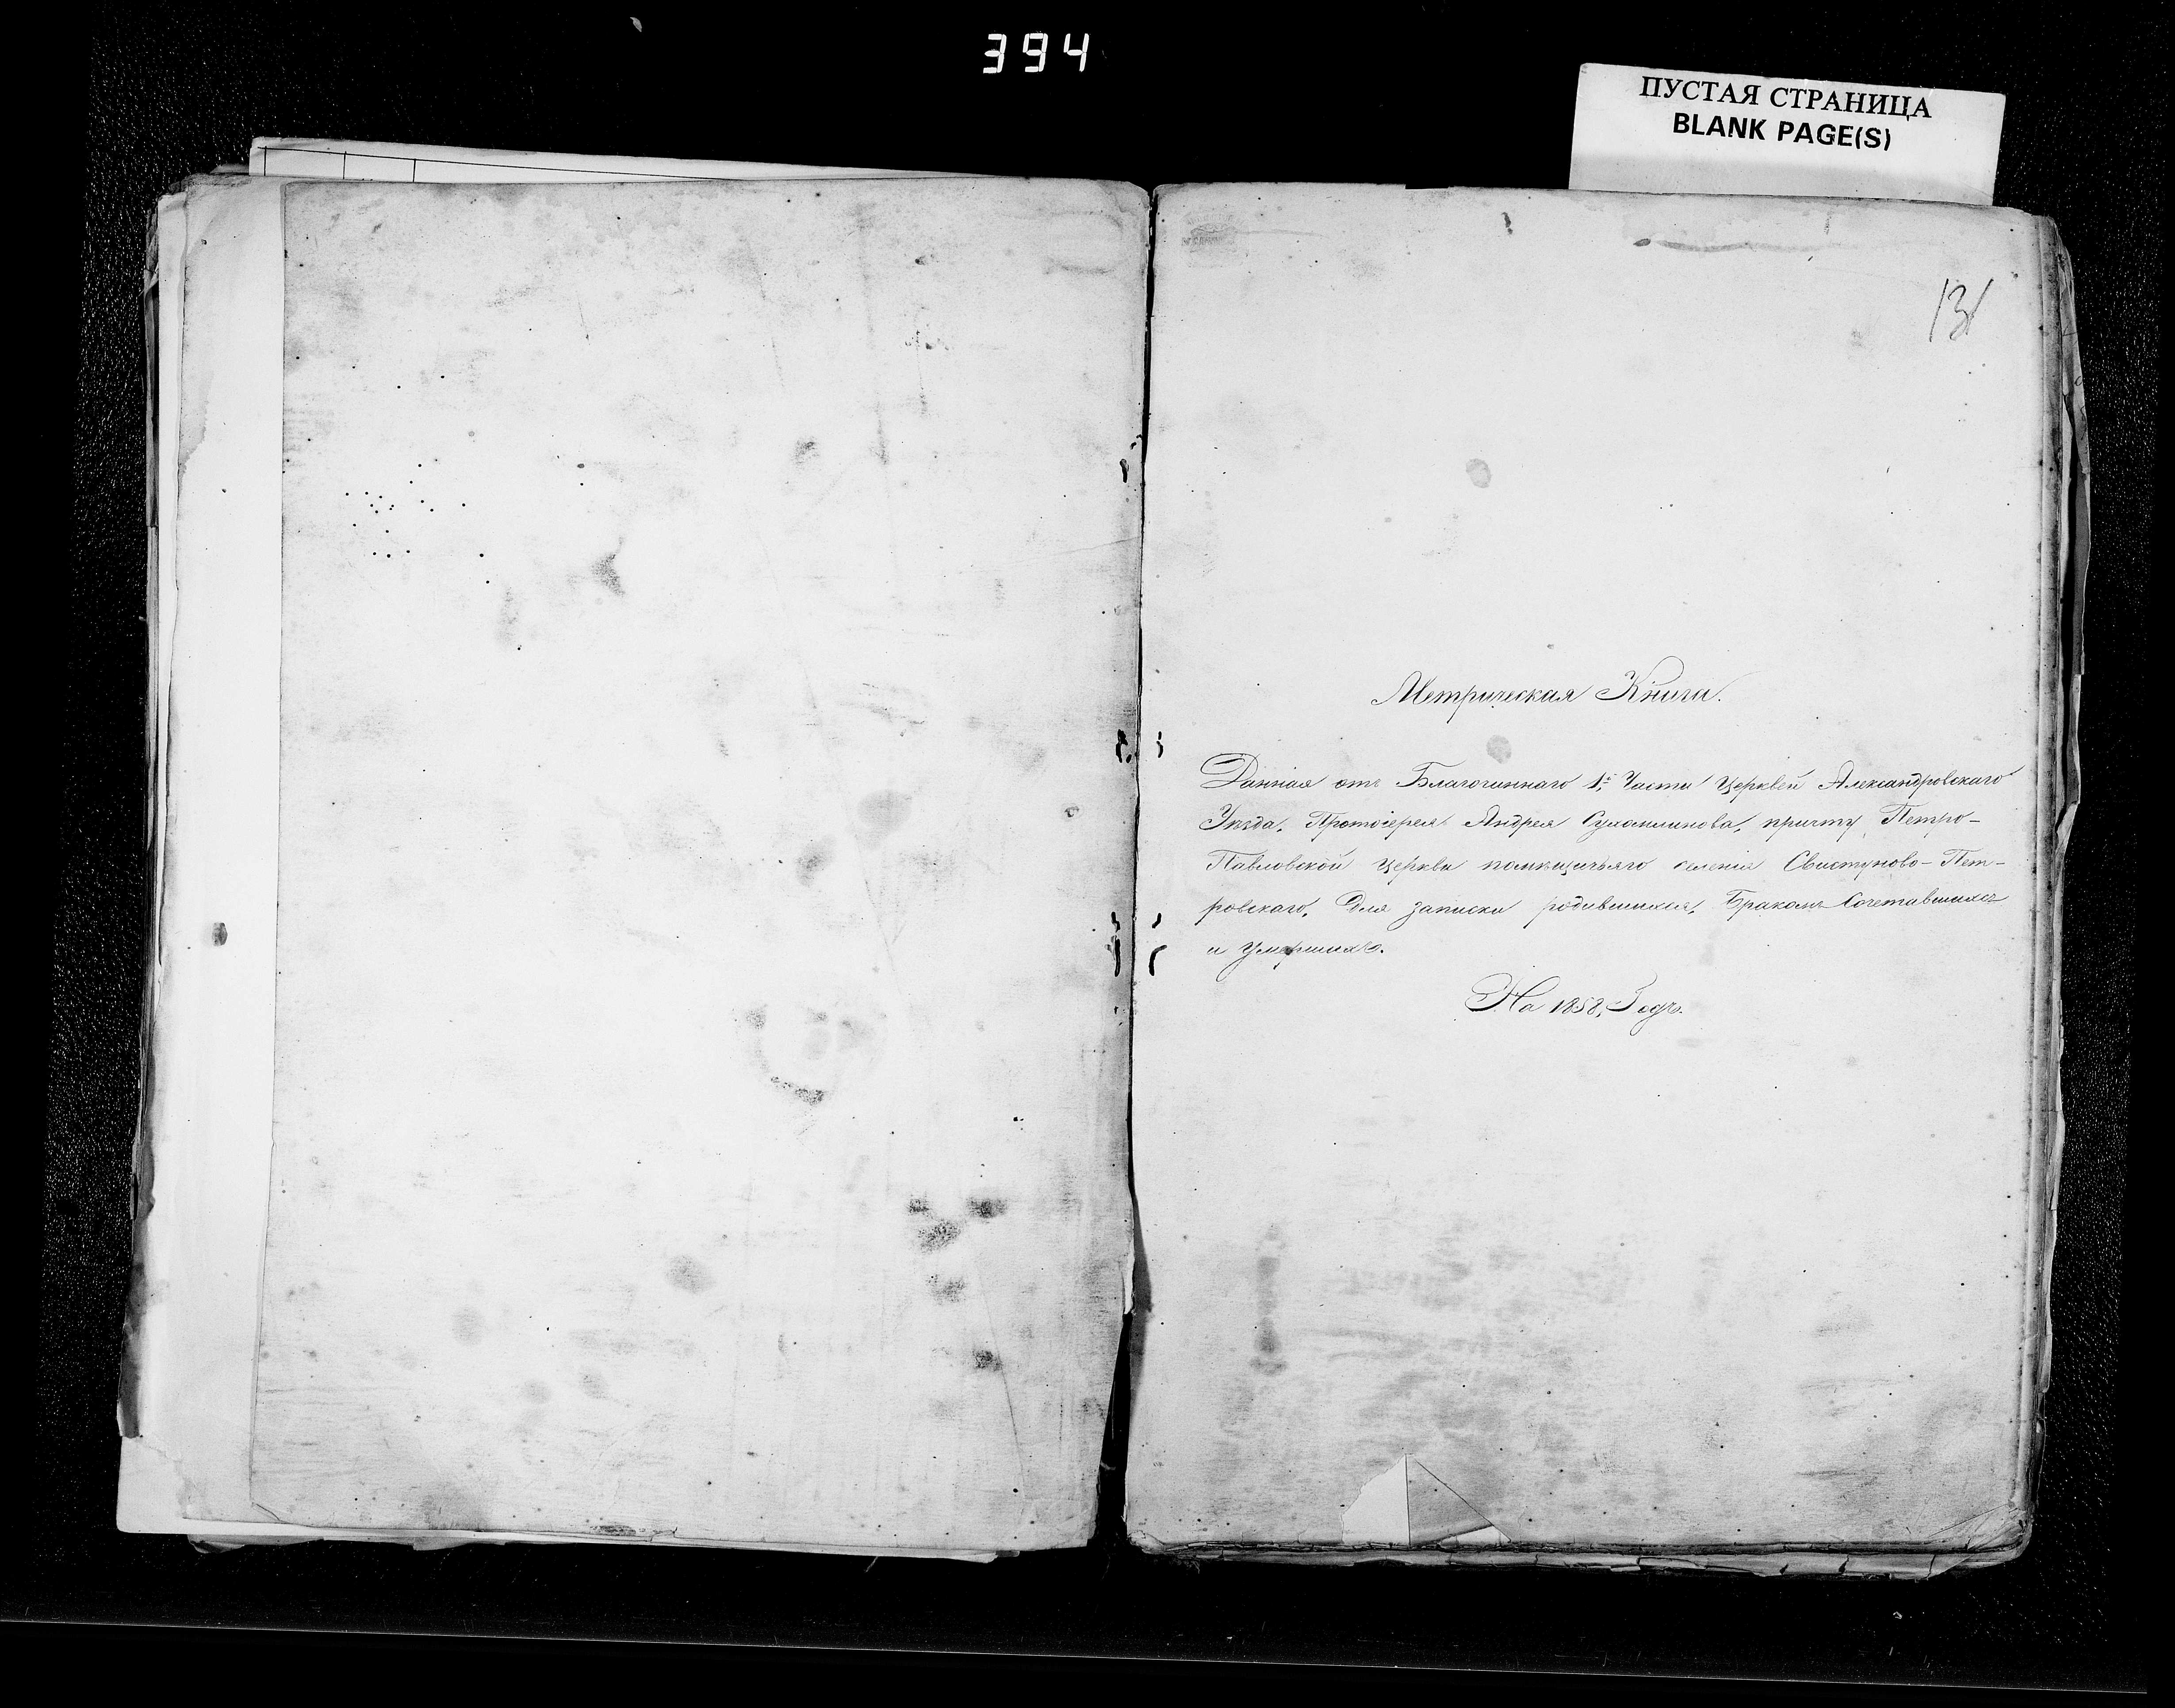 394
ПУСТАЯ СТРАНИЦА
BLANK PAGE(S)
131
Метрическая Книга.
Данная отъ Благочиннаго 1й Части Церквей Александровскаго
Уѣзда, Протоіерея Андрея Сухомлинова, причту Петро-
Павловской церкви помѣщичьяго селенія Свистуново-Пет-
ровскаго, Для записки родившихся, Бракомъ Сочетавшихся
и Умершихъ.
На 1858, Годъ.